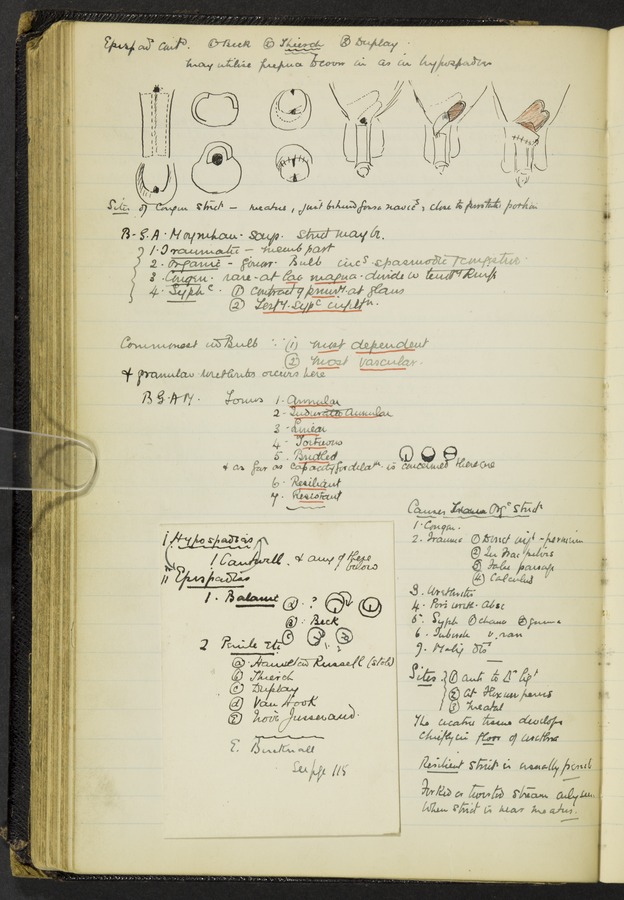 Epispad cont. ① Beck ② Thiersch ③ Duplay.
May utilise prepuce to cover in as in hypospadias
Sites of Congen Strict – meatus, just behind fossa navic. & close to prostatic portion
B.G.A. Moynihan. says. Strict may be.
1. Traumatic – memb part
2. Organic – gonorr. Bulb circs spasmodic & congestive
3. Congen. rare. at lac magna. divide w tenoty Knife
4. Syphc. ① Contract of prim at glans
② Tery. Sypc infiltn.
Commonest in Bulb ∵ (1) most dependent
② most vascular.
& granular urethritis occurs here
B.G.A.M. Forms 1. Annular
2. Indurated Annular
3. Linear
4. Tortuous
5. Bridled
& as far as capacity for dilatn. is concerned there are
6. Resilient
7. Resistant
I Hypospadias
1 Cantwell. & any of these below
II Epispadias
1. Balanic ⓐ. ?
ⓑ. Beck
ⓒ
2 Penile Etc
ⓐ. Hamilton Russell (stole)
ⓑ Thiersch
ⓒ Duplay
ⓓ Van Hook
ⓔ Nové Josserand.
E. Bucknall
See pge 115
Causes Orgc Strict
1. Congen.
2. Trauma ① Direct inj – perineum
② In frac. pelvis
③ False passage
④ Calculus
3. Urethritis
4. Peri ureth. Absc
5. Syph ① chancre ② gumma
6. Tubercle v. rare
7. Malig Dis
Sites ① ant to Δr ligt
② At flexure penis
③ Meatal
The cicatric tissue develops
chiefly in floor of urethra
Resilient Strict is usually penile
Forked or twisted stream only seen
when strict is near meatus.